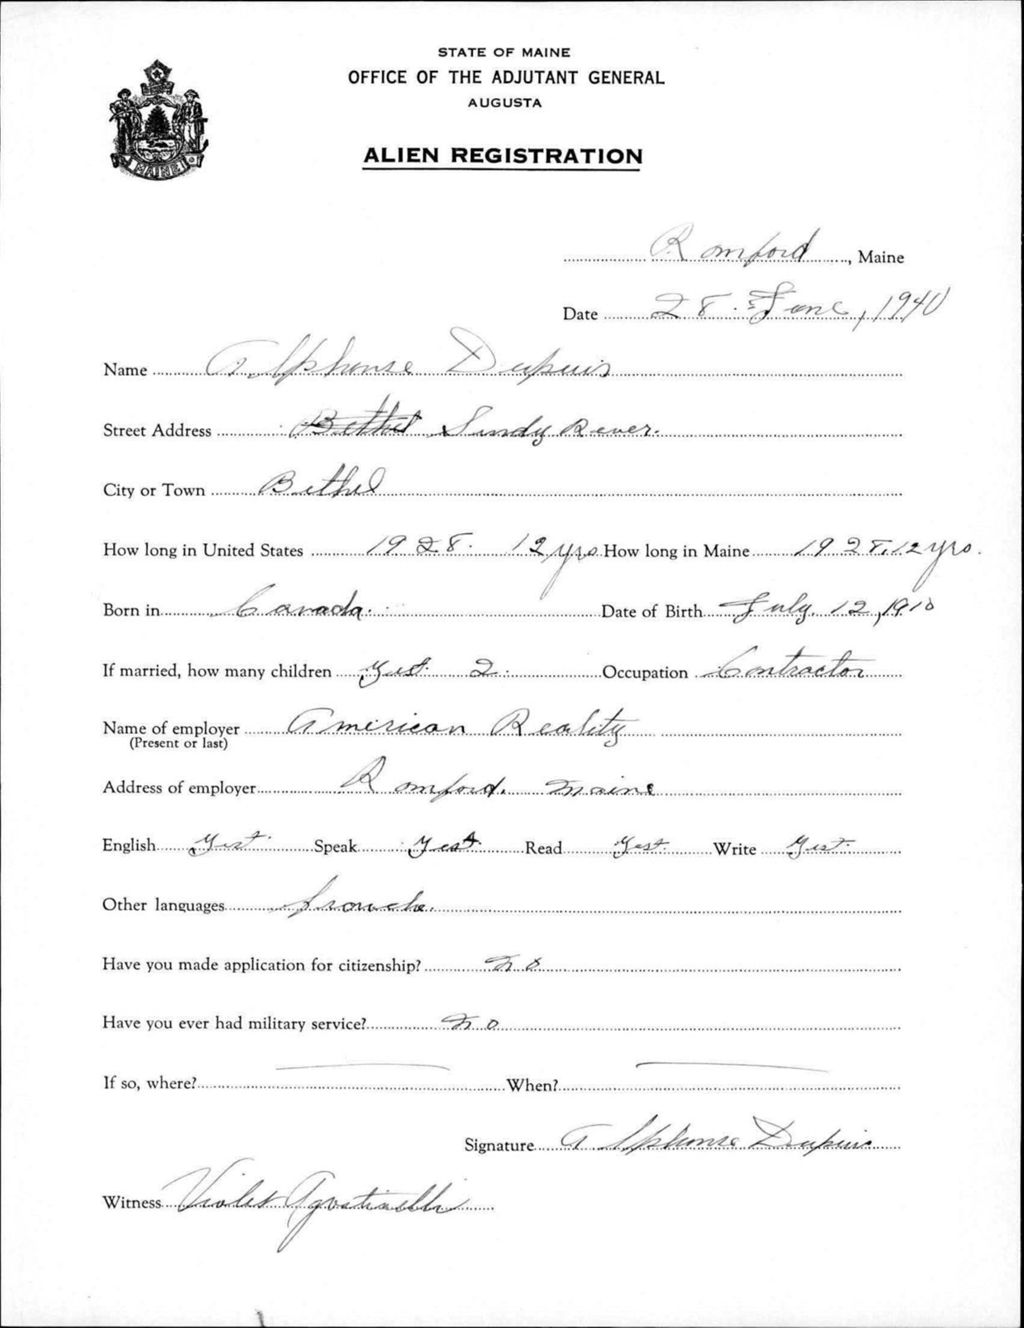 STATE OF MAINE
OFFICE OF THE ADJUTANT GENERAL
AUGUSTA
ALIEN REGISTRATION
MAINE
Romford, Maine
Date 28. June, 1940
Name Alphonse Dupuis
Street Address Bethel Sundy River.
City or Town Bethel
How long in United States 1928. 12 yrs How long in Maine 1928, 12 yrs.
Born in Canada. Date of Birth July. 12, 1910
If married, how many children Yest 2. Occupation Contractor
Name of employer American Reality
(Present or last)
Address of employer Romford. Maine
English Yest. Speak Yest. Read Yest. Write Yest.
Other languages
Have you made application for citizenship? No
Have you ever had military service? No
If so, where? When?
Signature Alphonse Dupuis
Witness Violet Agostinelli